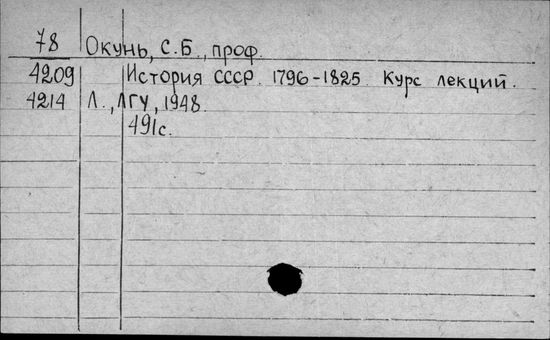 78 Окунь, С.Б., проф.
4209 История СССР. 1796-1825. Курс лекций.
4214 Л., ЛГУ, 1948.
491с.